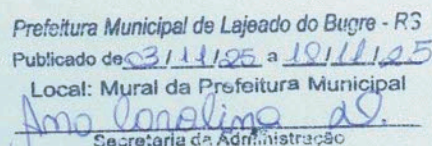 Prefeitura Municipal de Lajeado do Bugre - RS
Publicado de 03/11/25 a 18/11/25
Local: Mural da Prefeitura Municipal
Ana Carolina
Secretaria da Administração